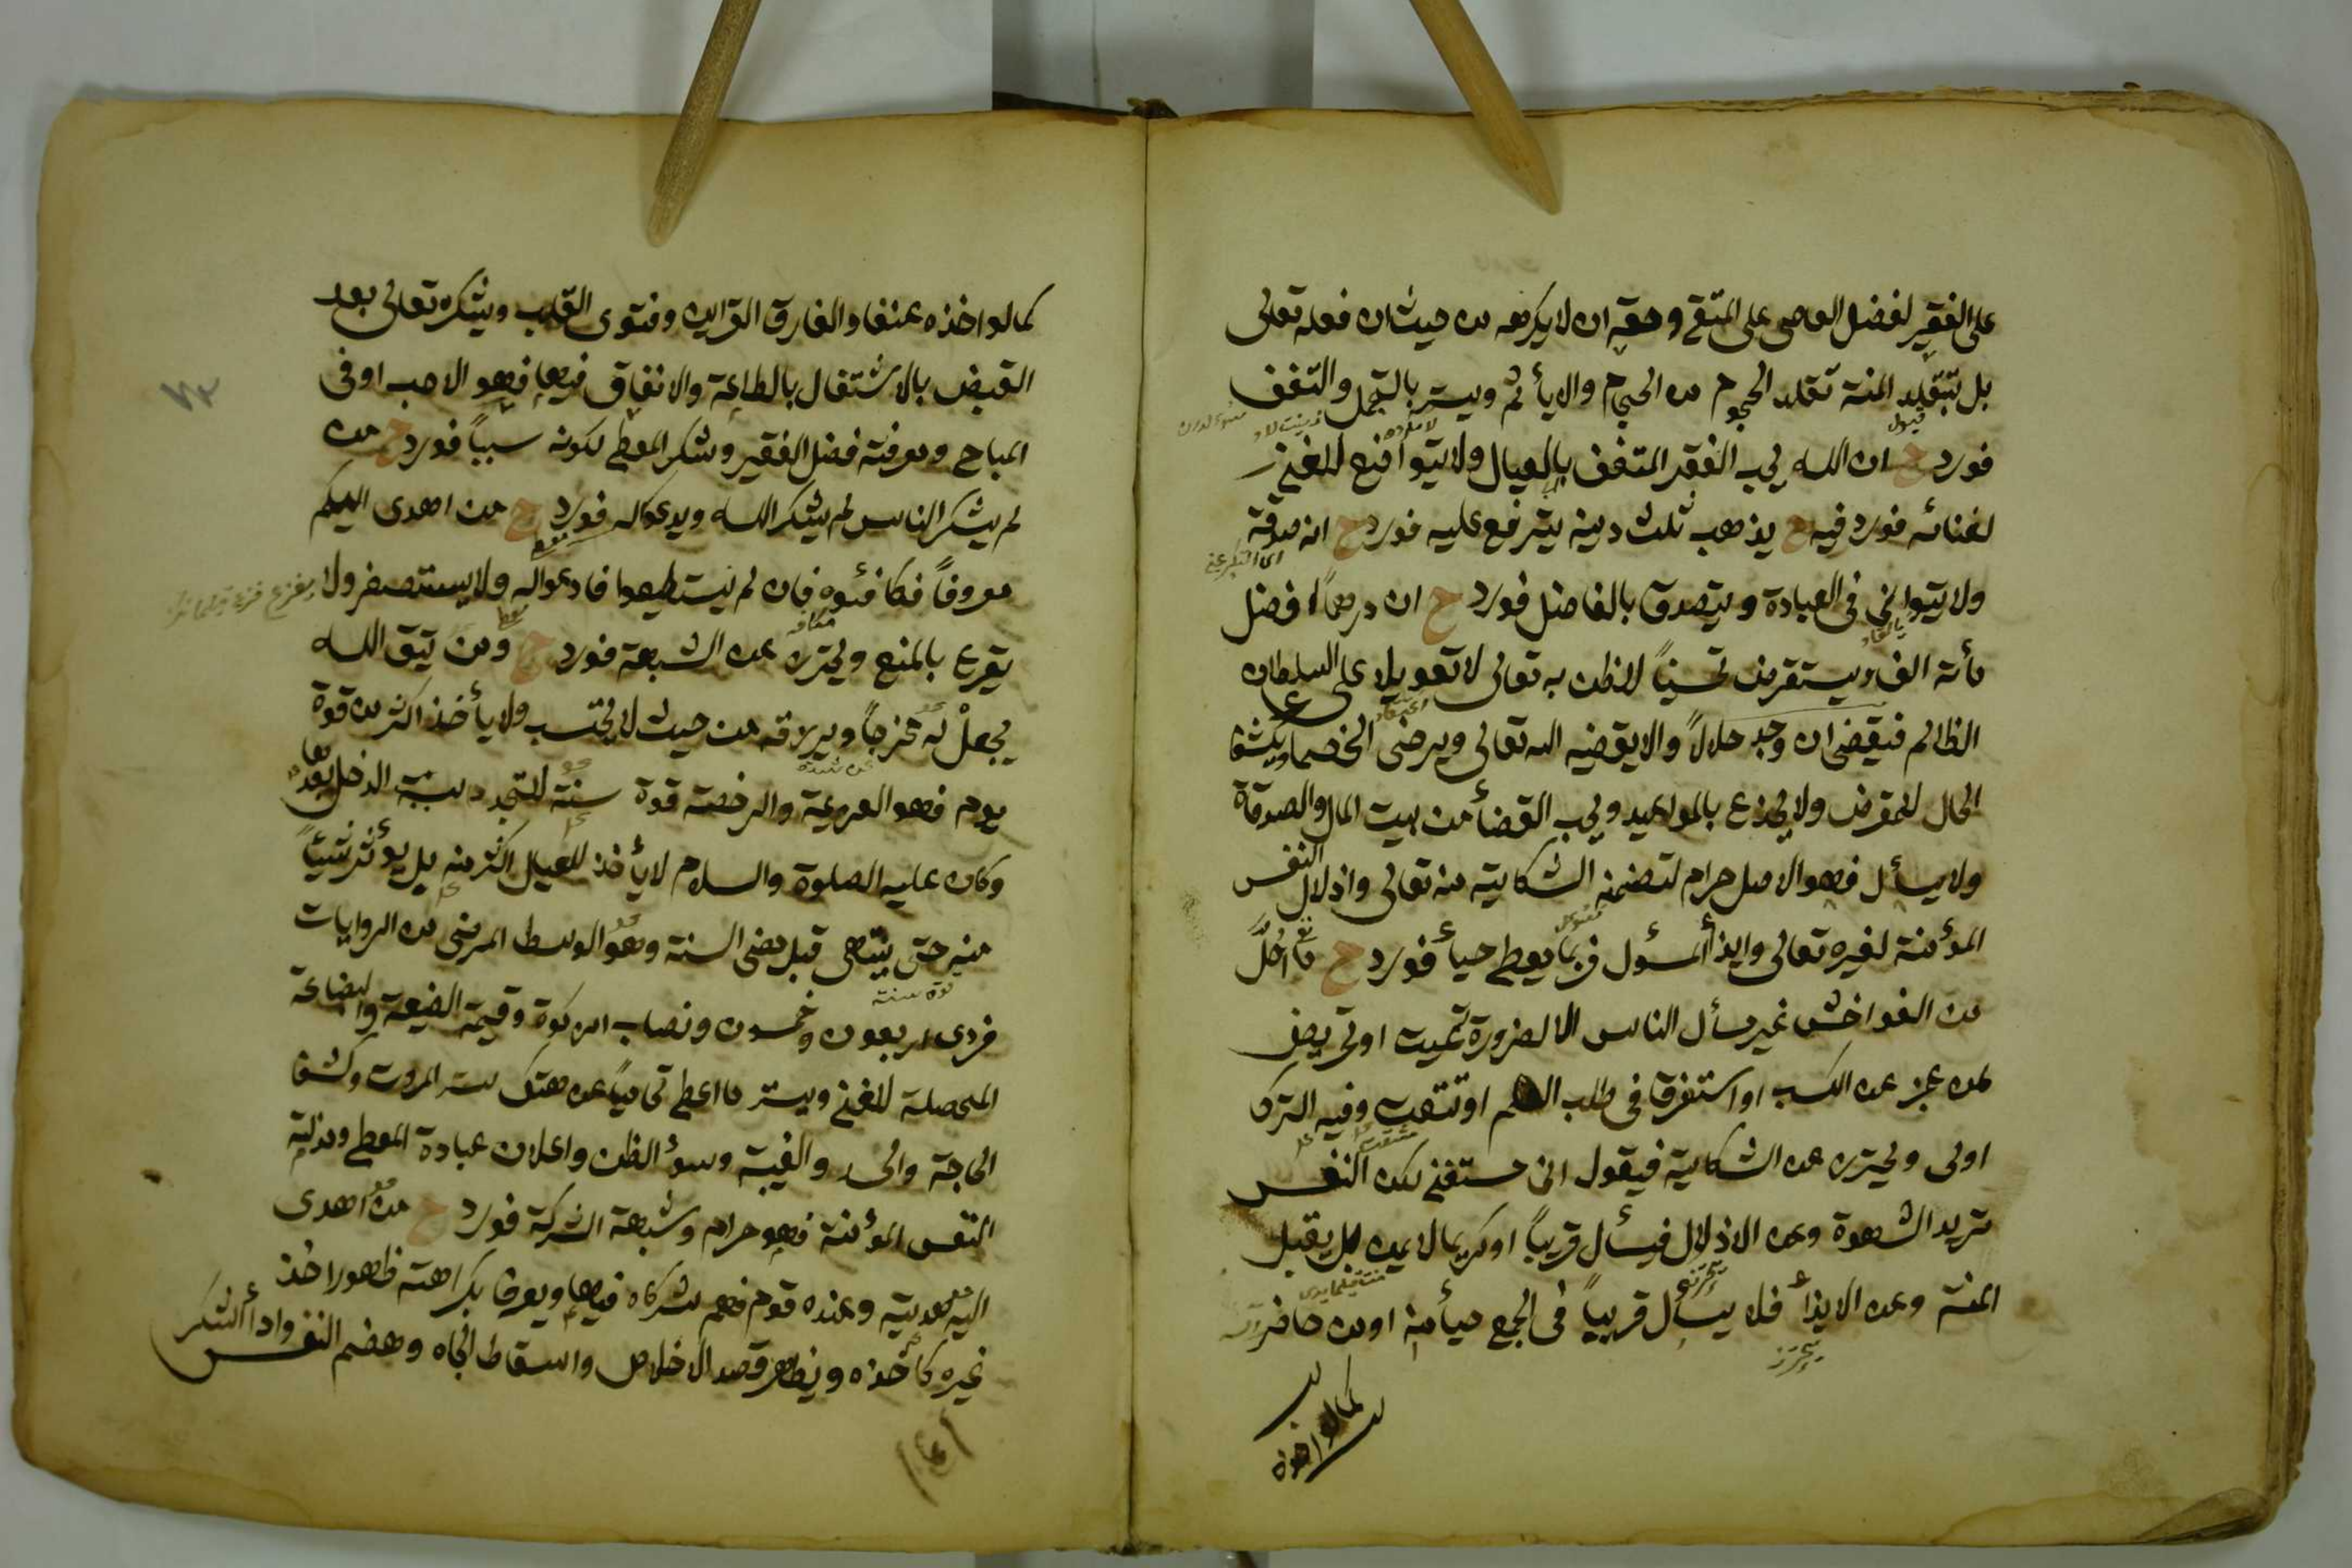 على الفقير لفضل العاصى على المتقى وحقه ان لا يكرهه من حيث ان فعله تعالى
بل يتقلد المنة تقلد المحجوم من الحجام والا يأثم ويستر بالتجمل والتعفف
فورد ح ان الله يحب الفقير المتعفف بالعيال ولا يتواضع للغنى
لغنائه فورد فيه ح يذهب ثلث دينه يترفع عليه فورد ح انه صدقة
ولا يتوانى فى العبادة ويتصدق بالفاضل فورد ح ان درهماً افضل
مأته الف ويستقرض تحسيناً لظن به تعالى لا تعويلا على السلطان
الظالم فيقضى ان وجد حلالاً والا يقضيه الله تعالى ويرضى الخصما ويكشف
الحال للمقرض ولا يخدع بالمواعيد ويجب القضأ من بيت المال والصدقة
ولا يسأل فهو الاصل حرام لتضمنه الشكاية منه تعالى واذلال النفس
المؤمنة لغيره تعالى وايذأ المسؤل فربما يعطى حيأ فورد ح ما احل
من الفواحش غير سأل الناس الا لضرورة تميت او تمرض
لمن عجز عن الكسب او استغرق فى طلب العلم او تتعب وفيه الترك
اولى ويحترز عن الشكاية فيقول انى مستغنى لكن النفس
تريد الشهوة وعن الاذلال فيسأل قريباً او كريما لا يمن بل يقبل
المنة وعن الايذأ فلا يسأل قريباً فى الجمع حيأ منه او من حاضر
كما لو اخذه
كما لو اخذه عنفا والفارق القراين وفتوى القلب ويشكره تعالى بعد
القبض بالاشتغال بالطاعة والانفاق فيها فهو الاحب او فى
المباح ومعرفة فضل الفقير وشكر المعطى لكونه سبباً فورد ح من
لم يشكر الناس لم يشكر الله ويدعو له فورد ح من اهدى اليكم
معروفاً فكافئوه فان لم تستطيعوا فادعوا له ولا يستصغر ولا
يقرع بالمنع ويحترز عن الشبهة فورد ح ومن يتق الله
يجعل له مخرجاً ويرزقه من حيث لا يحتسب ولا يأخذ اكثر من قوة
يوم فهو العزيمة والرخصة قوة سنة لتجدد سبب الدخل بعدها
وكان عليه الصلوة والسلام لا يأخذ للعيال اكثر منه بل يؤثر شيئاً
منه حتى ينتهى قبل مضى السنة وهو الوسط المرضى من الروايات
فروى اربعون وخمسون ونصاب الزكوة وقيمة الضيعة والبضاعة
المحصلة للغنى ويستر ما اعطى تحامياً عن هتك ستر المروت وكشف
الحاجة والحسد والغيبة وسوء الظن واعلان عبادة المعطى ومذلة
النفس المؤمنة فهو حرام وشبهة الشركة فورد ح من اهدى
اليه هدية وعنده قوم فهم شركاه فيها ويعرف بكراهته ظهور اخذ
غيره كأخذه ويظهر قصد الاخلاص واسقاط الجاه وهضم النفس وادأ الشكر